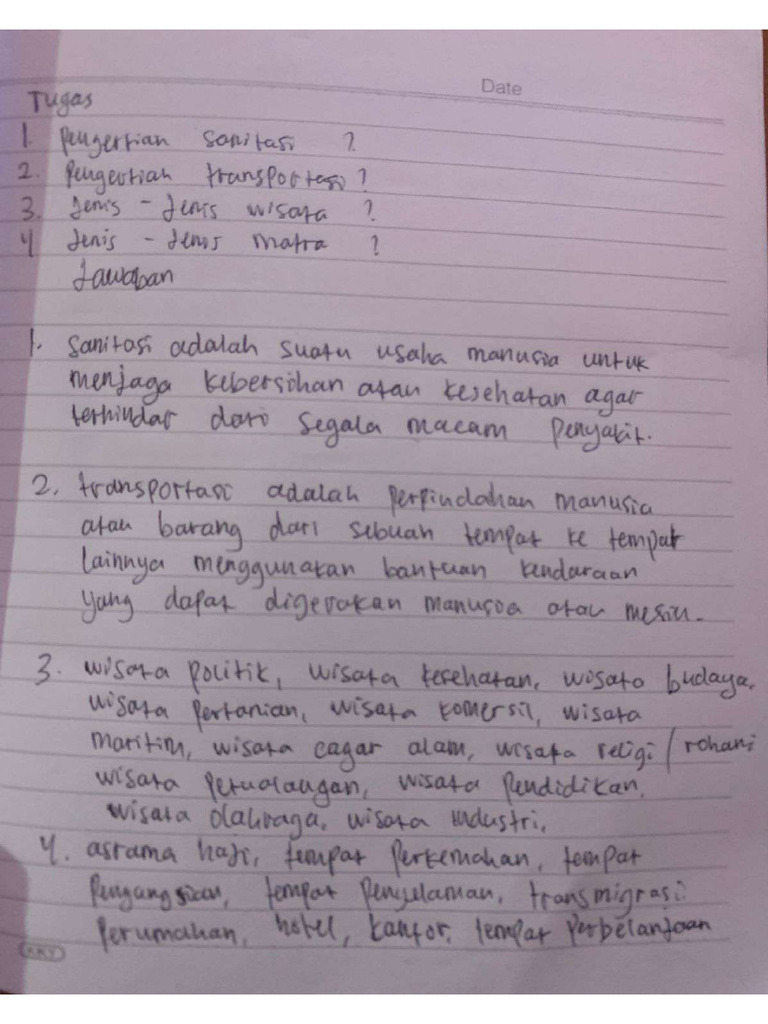 Date
Tugas
1. Pengertian sanitasi ?
2. Pengertian transportasi ?
3. Jenis - Jenis wisata ?
4 Jenis - Jenis matra ?
Jawaban
1. Sanitasi adalah suatu usaha manusia untuk
menjaga kebersihan atau kesehatan agar
terhindar dari segala macam penyakit.
2. transportasi adalah perpindahan manusia
atau barang dari sebuah tempat ke tempat
lainnya menggunakan bantuan kendaraan
yang dapat digerakan manusia atau mesin.
3. wisata politik, wisata kesehatan, wisata budaya,
wisata pertanian, wisata komersil, wisata
maritim, wisata cagar alam, wisata religi / rohani
wisata petualangan, wisata pendidikan,
wisata olahraga, wisata industri,
4. asrama haji, tempat perkemahan, tempat
pengungsian, tempat penyelaman, transmigrasi
perumahan, hotel, kantor, tempat perbelanjaan